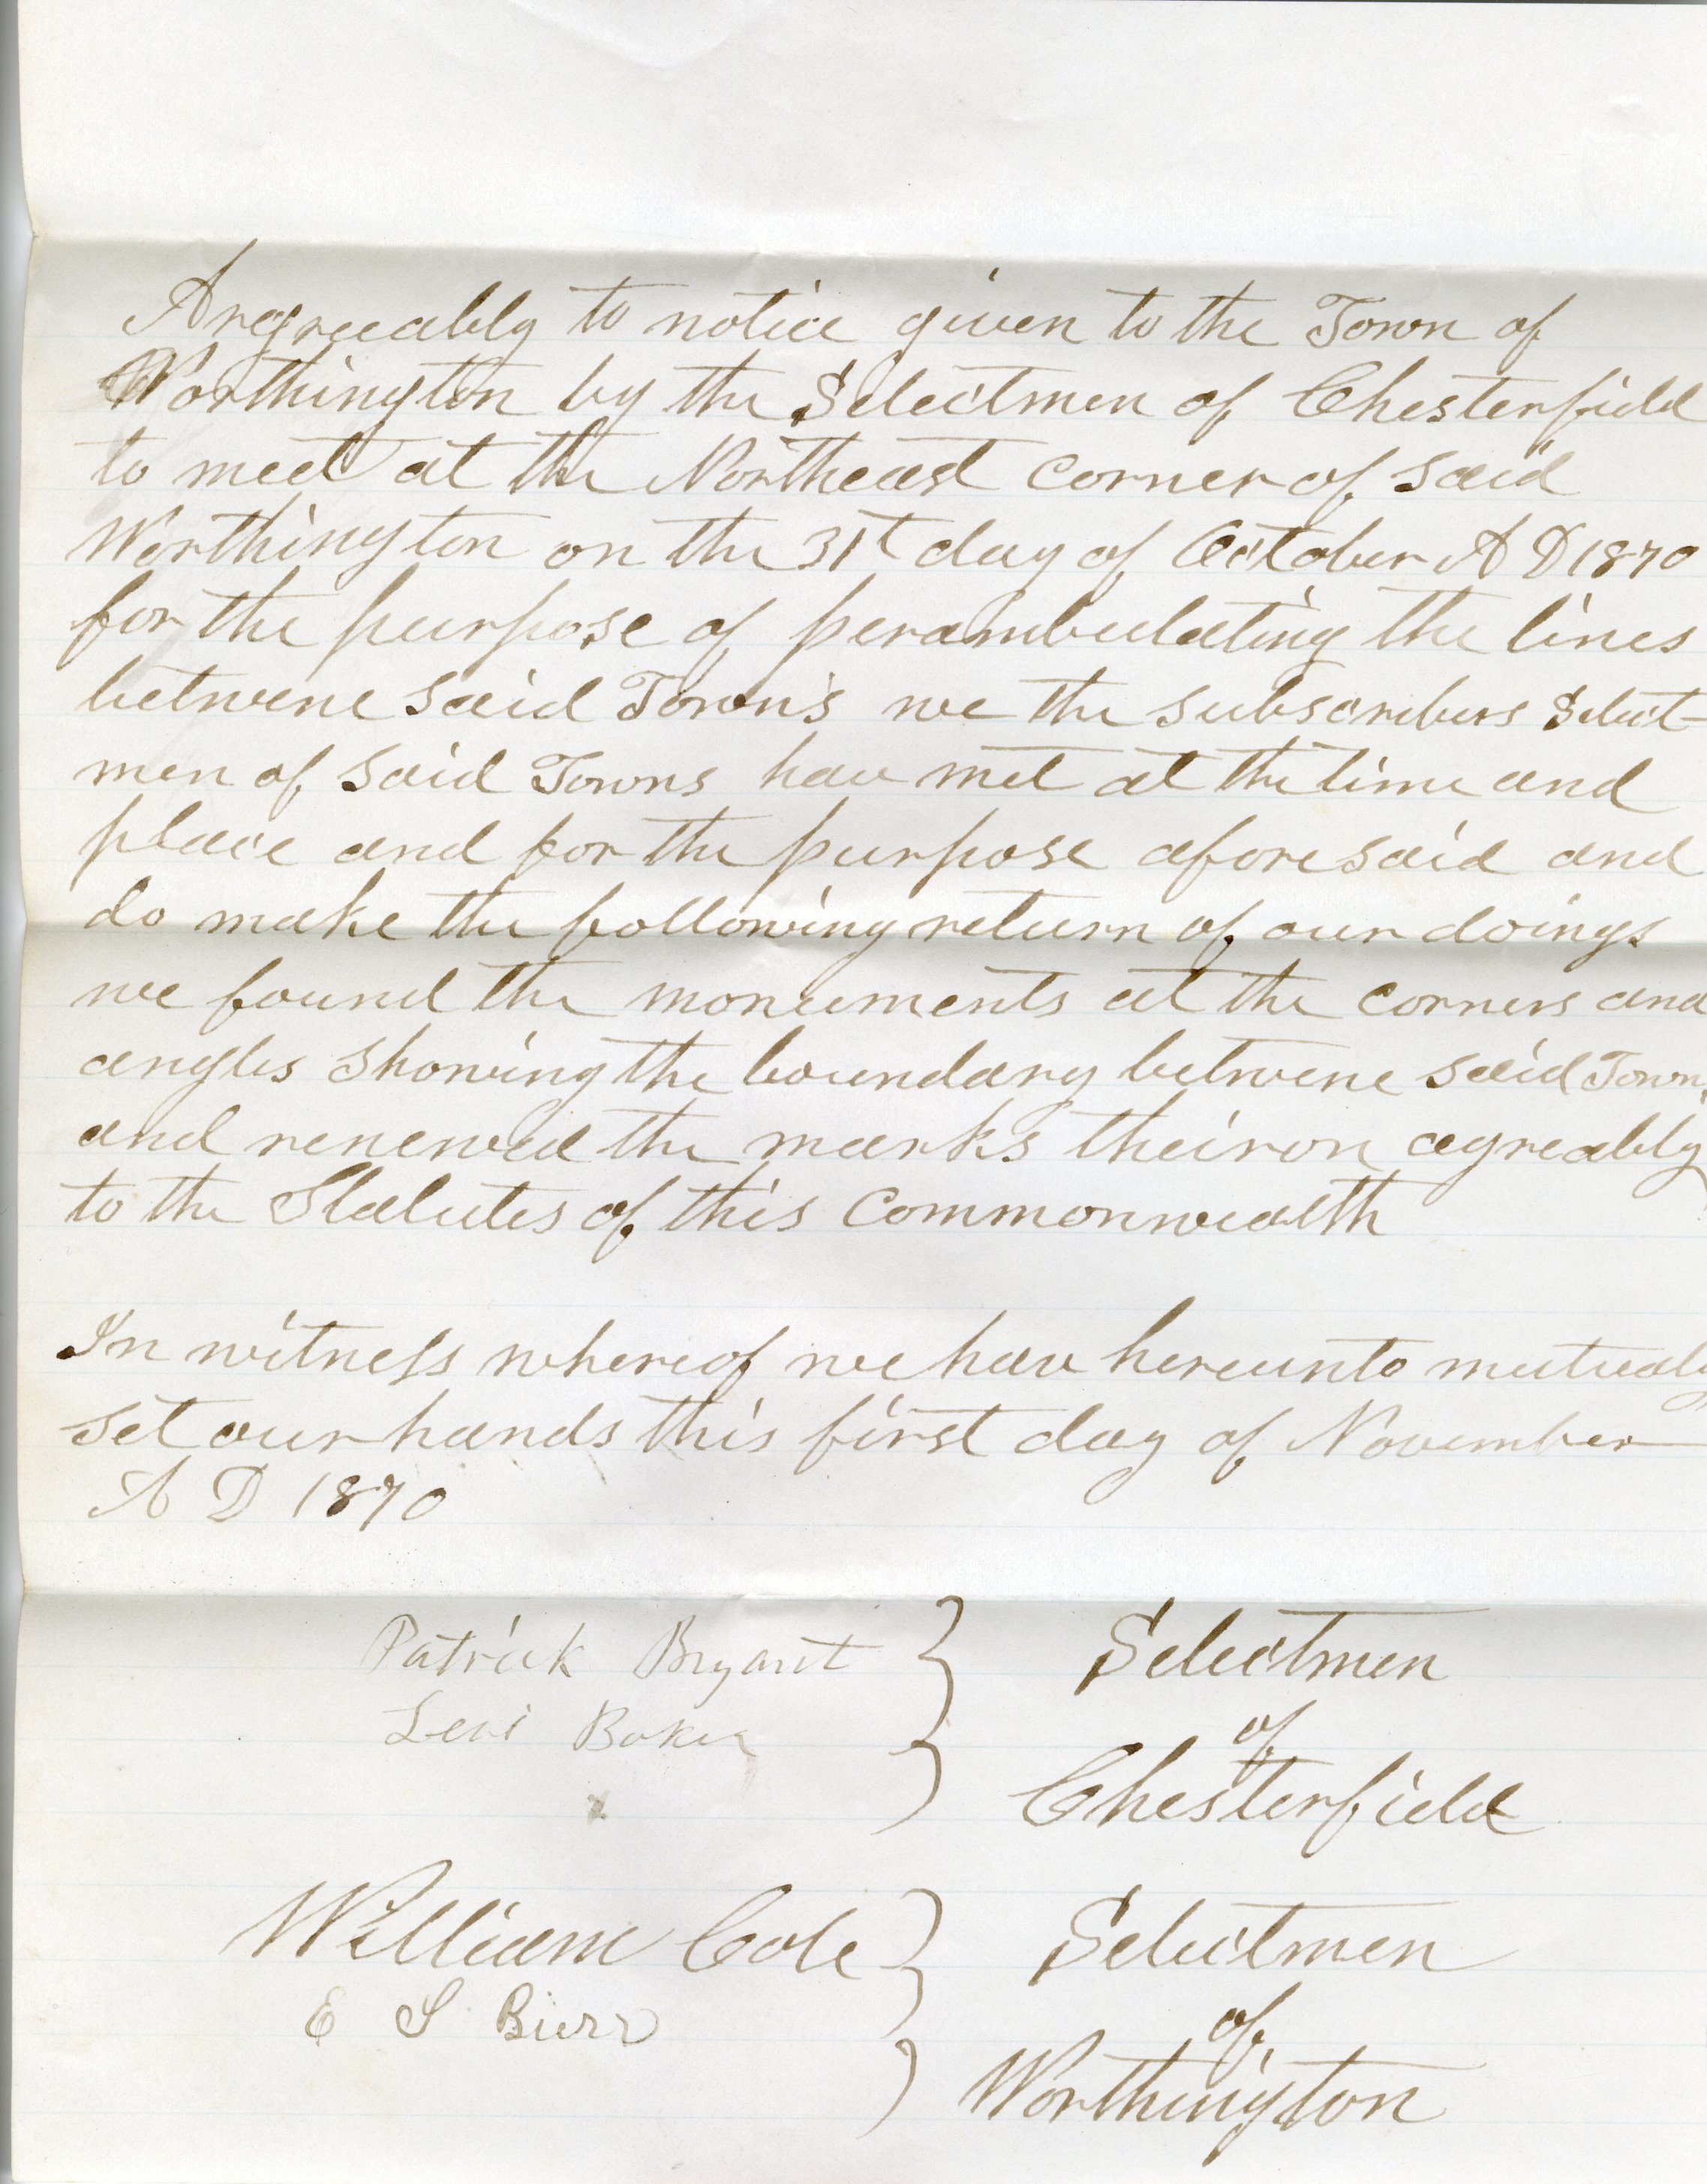 Aregreeably to notice given to the Town of
Worthington by the Selectmen of Chesterfield
to meet at the Northeast corner of said
Worthington on the 31st day of October A D 1870
for the purpose of perambulating the lines
betwene said Town's we the subscribers Select-
men of said Towns hav met at the time and
place and for the purpose aforesaid and
do make the following return of our doings
we found the monuments at the corners and
angles showing the boundary betwene said Towns
and renewed the marks theiron agreably
to the Statutes of this Commonwealth
In witness whereof we hav hereunto mutualy
set our hands this first day of November
A D 1870
Patrick Bryant } Selectmen
Levi Baker of
Chesterfield
William Cole } Selectmen
E S of
Worthington